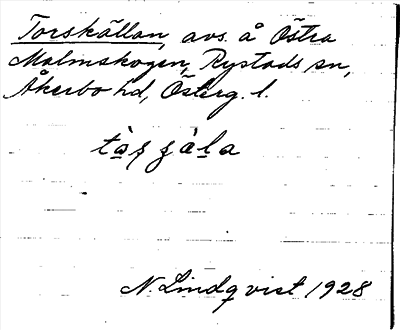 Torskällan, avs. å Östra
Malmskogen, Rystads sn,
Åkerbo hd, Österg. l.
N. Lindqvist 1928